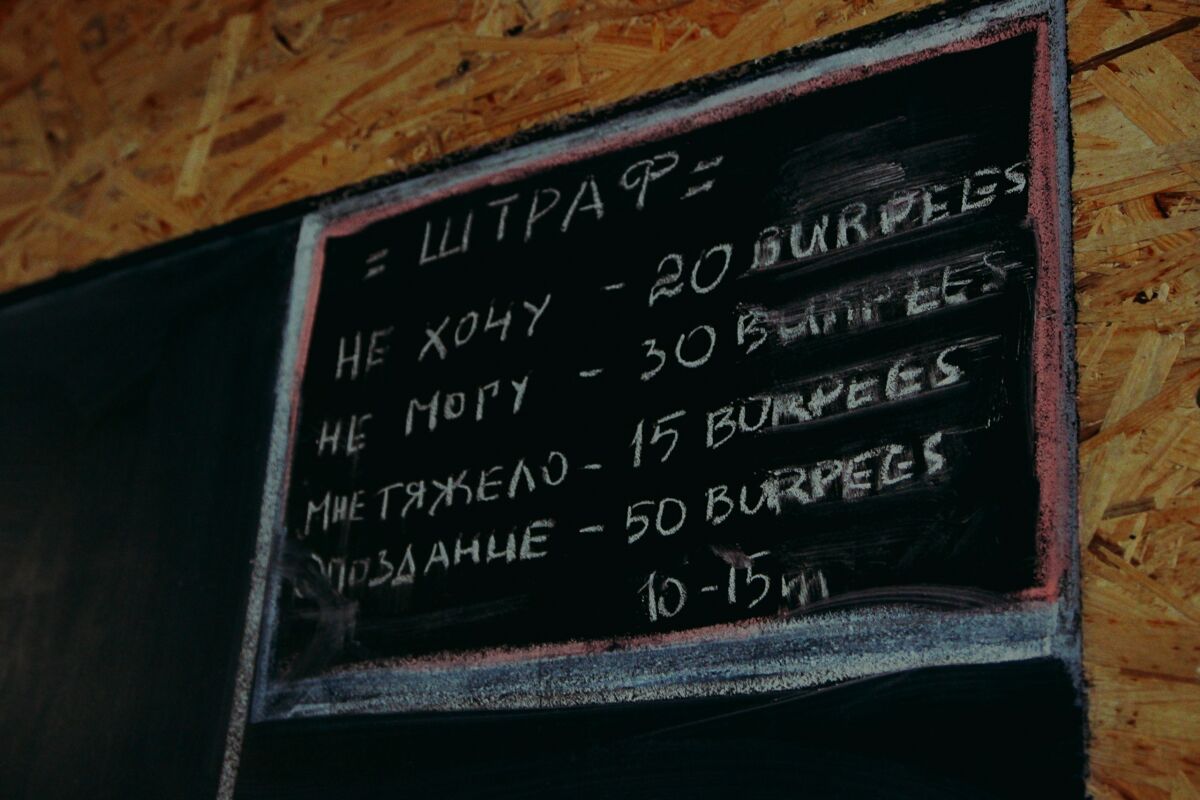 = ШТРАФ =
НЕ ХОЧУ - 20 BURPEES
НЕ МОГУ - 30 BURPEES
МНЕ ТЯЖЕЛО - 15 BURPEES
ОПОЗДАНИЕ - 50 BURPEES
10-15m